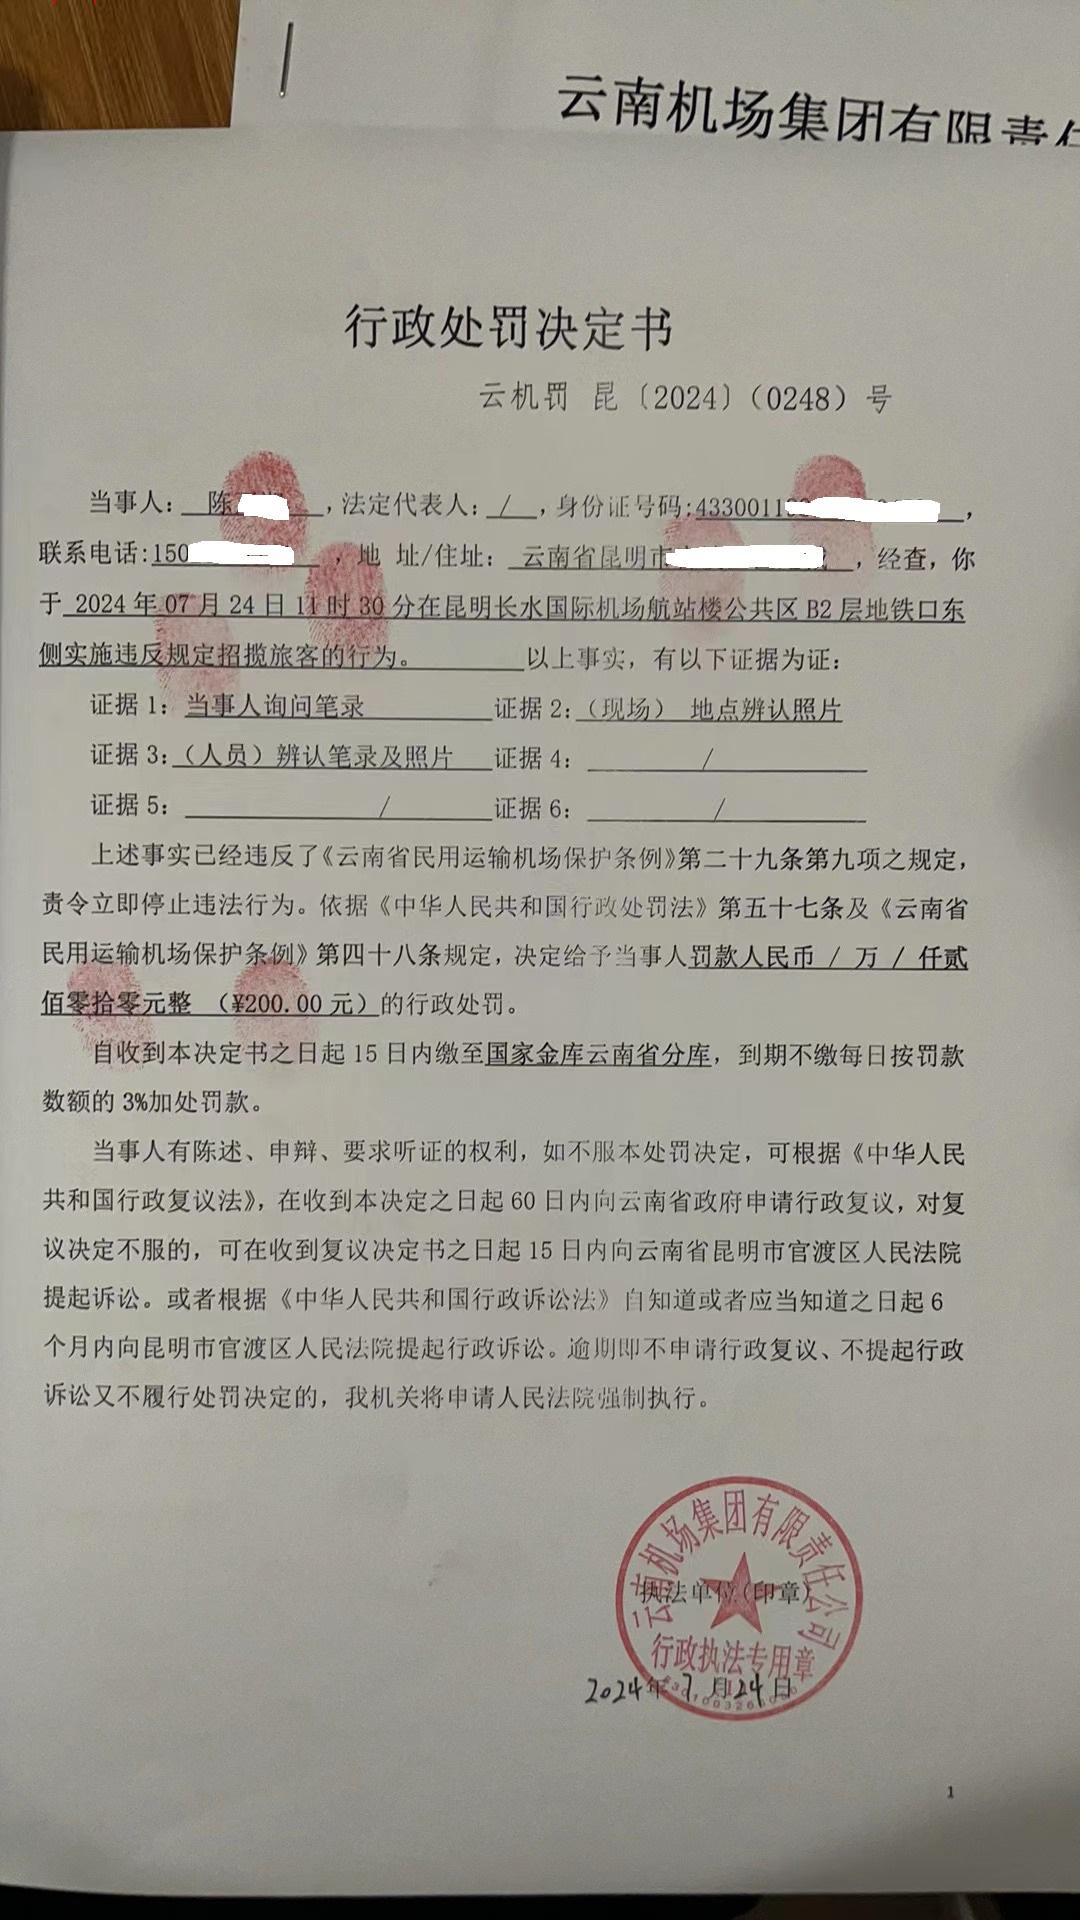 云南机场集团有限责任
行政处罚决定书
云机罚 昆〔2024〕(0248) 号
当事人： 陈 ，法定代表人： / ，身份证号码:4330011 ，
联系电话:150 ，地 址/住址： 云南省昆明市 ，经查，你
于 2024 年 07 月 24 日 11 时 30 分在昆明长水国际机场航站楼公共区 B2 层地铁口东
侧实施违反规定招揽旅客的行为。 以上事实，有以下证据为证：
证据 1：当事人询问笔录 证据 2：（现场） 地点辨认照片
证据 3：（人员）辨认笔录及照片 证据 4： /
证据 5： / 证据 6： /
上述事实已经违反了《云南省民用运输机场保护条例》第二十九条第九项之规定，
责令立即停止违法行为。依据《中华人民共和国行政处罚法》第五十七条及《云南省
民用运输机场保护条例》第四十八条规定，决定给予当事人罚款人民币 / 万 / 仟贰
佰零拾零元整 （¥200.00 元）的行政处罚。
自收到本决定书之日起 15 日内缴至国家金库云南省分库，到期不缴每日按罚款
数额的 3%加处罚款。
当事人有陈述、申辩、要求听证的权利，如不服本处罚决定，可根据《中华人民
共和国行政复议法》，在收到本决定之日起 60 日内向云南省政府申请行政复议，对复
议决定不服的，可在收到复议决定书之日起 15 日内向云南省昆明市官渡区人民法院
提起诉讼。或者根据《中华人民共和国行政诉讼法》自知道或者应当知道之日起 6
个月内向昆明市官渡区人民法院提起行政诉讼。逾期即不申请行政复议、不提起行政
诉讼又不履行处罚决定的，我机关将申请人民法院强制执行。
云南机场集团有限责任公司
执法单位(印章)
行政执法专用章
2024年 7 月 24 日
1